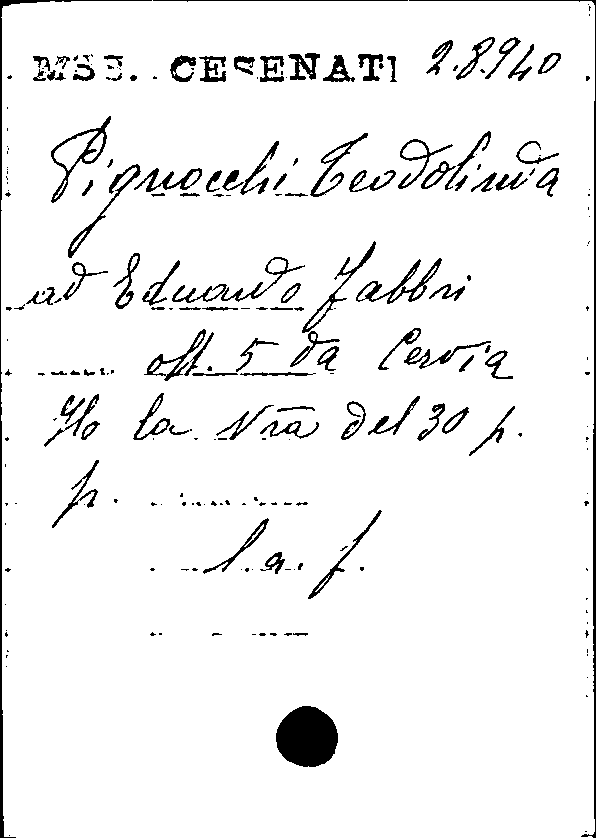 MSS. CESENATI 2.8.940
Pignocchi Teodolinda
ad Eduardo Fabbri
ott. 5 da Cervia
Ho la Vrā del 30 p.
p.
l. a. f.